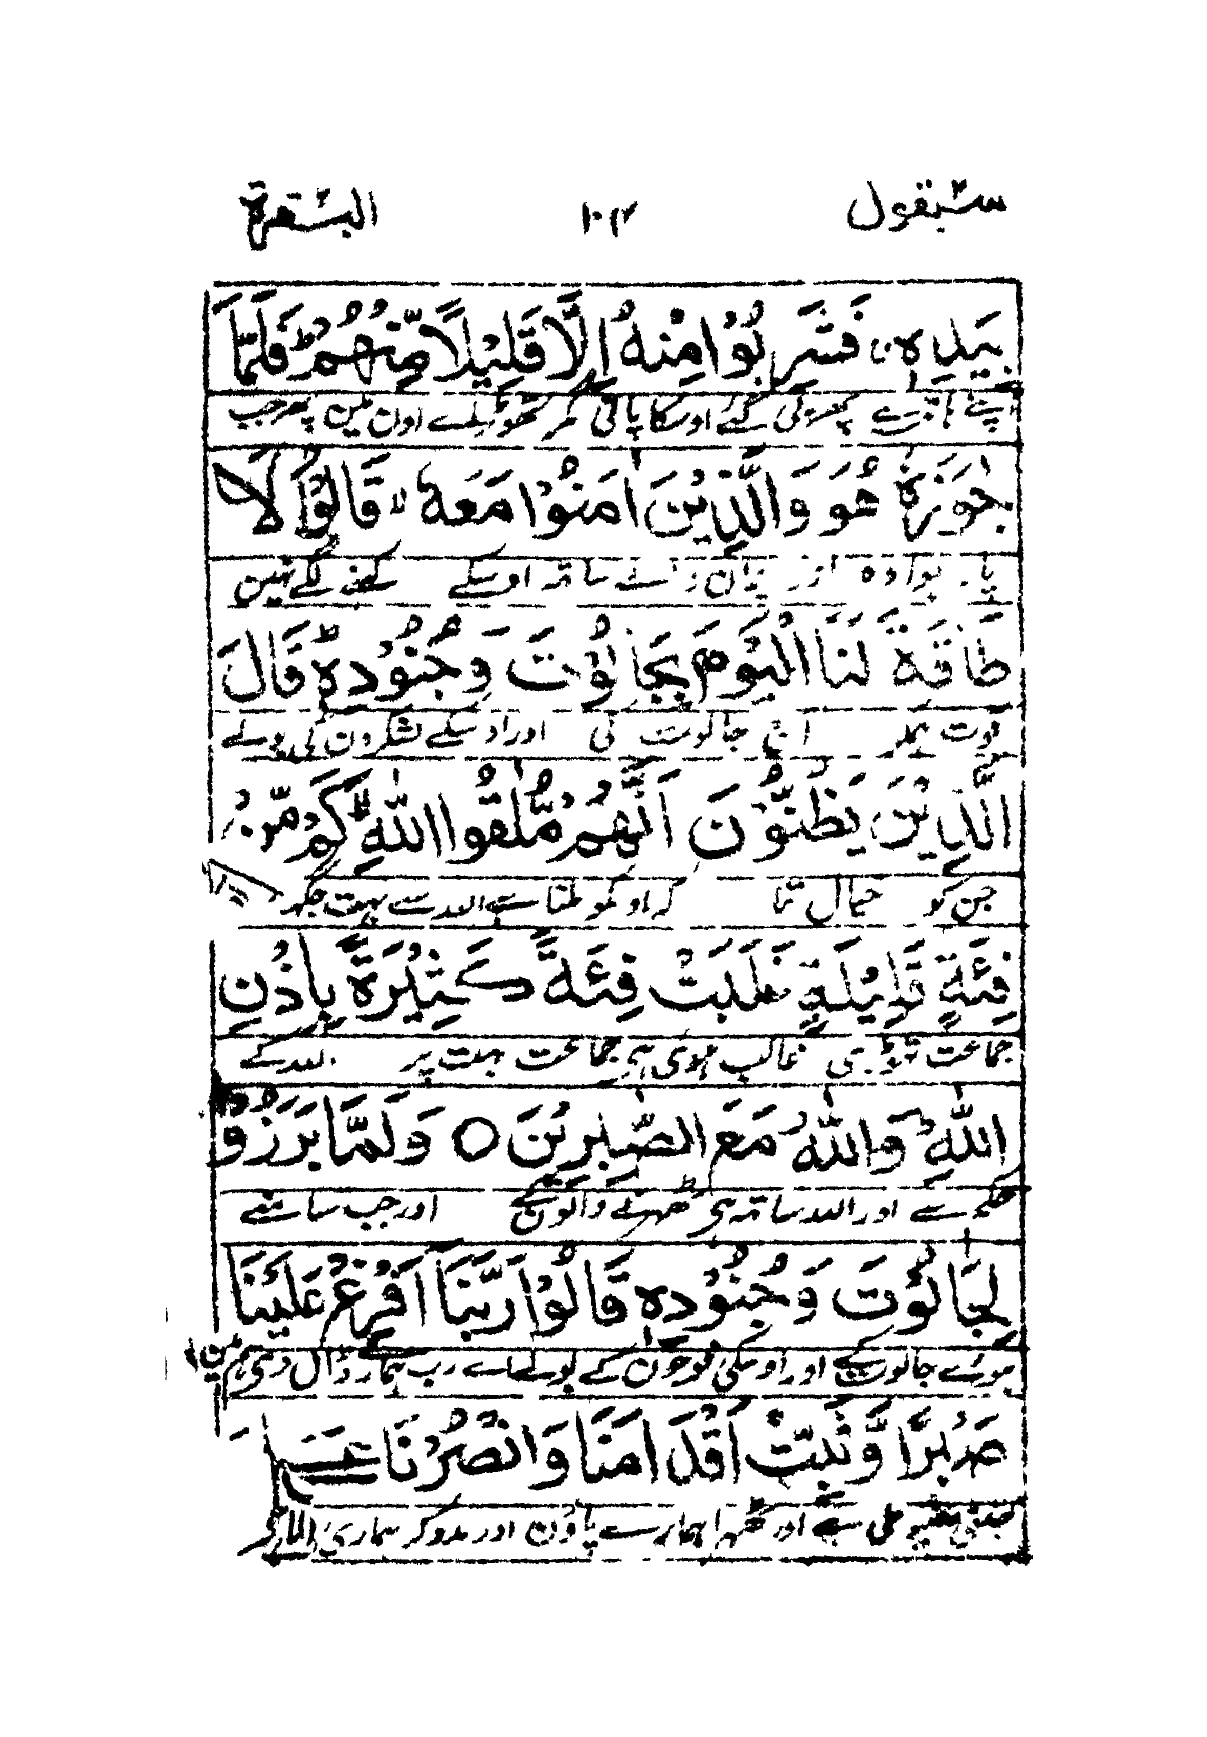 سيقول ١٠٢ البقرة
بِيَدِهٖ ۚ فَشَرِبُوْا مِنْهُ اِلَّا قَلِيْلًا مِّنْهُمْ ؕ فَلَمَّا
اپنے ہاتھ سے پھر پی گئے اوسکا پانی مگر تھوڑے اون مین پھر جب
جَاوَزَهٗ هُوَ وَالَّذِيْنَ اٰمَنُوْا مَعَهٗ ۙ قَالُوْا لَا
پار ہوا وہ اور ایمان والے ساتھ اوسکے کہنے لگے نہین
طَاقَةَ لَنَا الْيَوْمَ بِجَالُوْتَ وَجُنُوْدِهٖ ؕ قَالَ
قوت ہمکو آج جالوت کی اور اوسکے لشکرون کی بولے
الَّذِيْنَ يَظُنُّوْنَ اَنَّهُمْ مُّلٰقُوا اللّٰهِ ۙ كَمْ مِّنْ
جن کو خیال تھا کہ اونکو ملنا ہے اللہ سے بہت جگہ
فِئَةٍ قَلِيْلَةٍ غَلَبَتْ فِئَةً كَثِيْرَةً بِاِذْنِ
جماعت تھوڑی غالب ہوئی ہی جماعت بہت پر اللہ کے
اللّٰهِ ؕ وَاللّٰهُ مَعَ الصّٰبِرِيْنَ ○ وَلَمَّا بَرَزُوْا
حکم سے اور اللہ ساتھ ہی ٹھہرنے والون کے اور جب سامنے
لِجَالُوْتَ وَجُنُوْدِهٖ قَالُوْا رَبَّنَاۤ اَفْرِغْ عَلَيْنَا
ہوئے جالوت کے اور اوسکی فوجون کے بولے اے رب ہمارے ڈال دی ہم مین
صَبْرًا وَّثَبِّتْ اَقْدَامَنَا وَانْصُرْنَا عَلَى
جتنی مضبوطی ہے اور ٹھہرا ہمارے پاؤن اور مدد کر ہماری